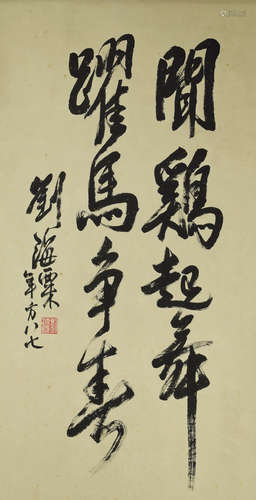 聞鷄起舞
躍馬争春
劉海粟
年方八七